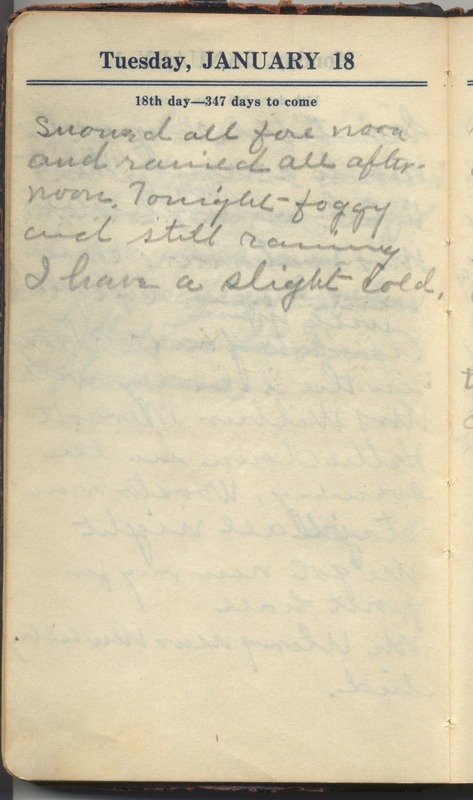 Tuesday, JANUARY 18
18th day—347 days to come
Snowed all fore noon
and rained all after-
noon. Tonight foggy
and still raining
I have a slight cold.